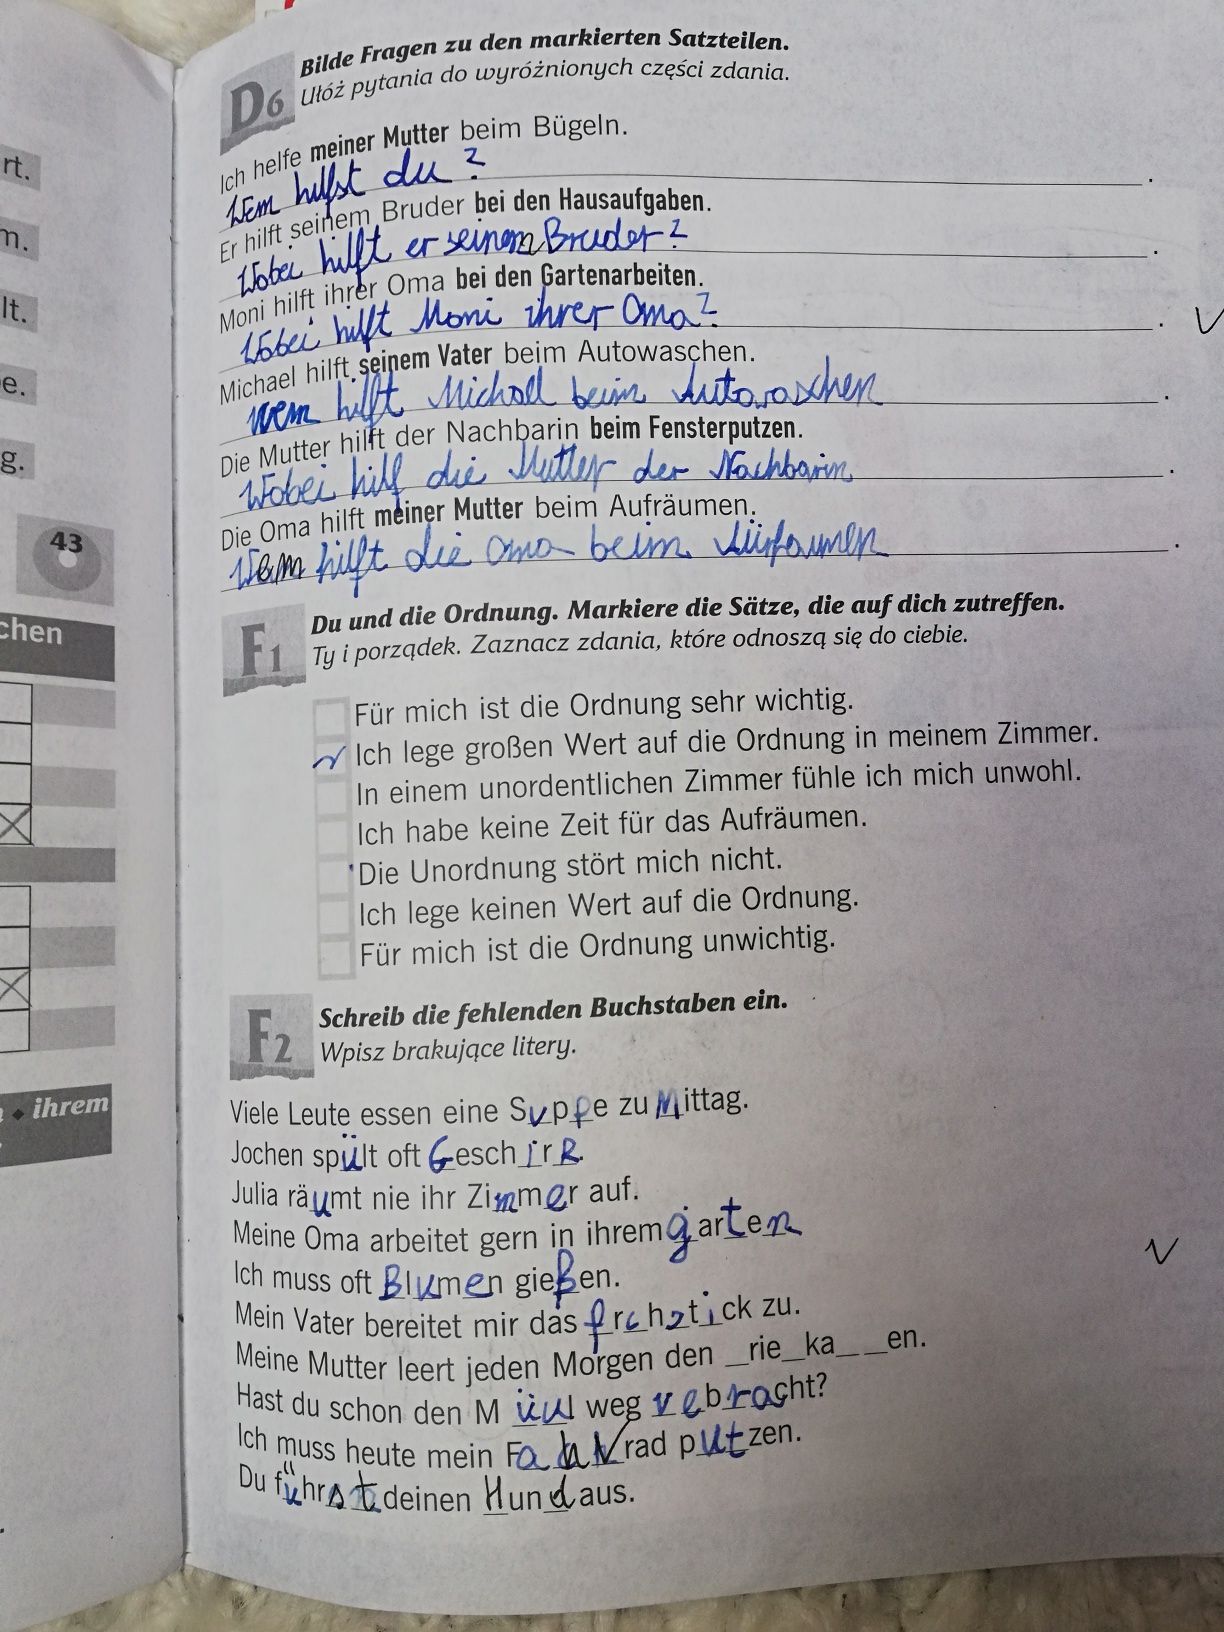 rt.
m.
lt.
e.
g.
43
chen
ihrem
D6
Bilde Fragen zu den markierten Satzteilen.
Ułóż pytania do wyróżnionych części zdania.
Ich helfe meiner Mutter beim Bügeln.
Wem hilfst du?
Er hilft seinem Bruder bei den Hausaufgaben.
Wobei hilft er seinem Bruder?
Moni hilft ihrer Oma bei den Gartenarbeiten.
Wobei hilft Moni ihrer Oma?
Michael hilft seinem Vater beim Autowaschen.
Wem hilft Michael beim Autowaschen
Die Mutter hilft der Nachbarin beim Fensterputzen.
Wobei hilf die Mutter der Nachbarin
Die Oma hilft meiner Mutter beim Aufräumen.
Wem hilft die Oma beim
F1
Du und die Ordnung. Markiere die Sätze, die auf dich zutreffen.
Ty i porządek. Zaznacz zdania, które odnoszą się do ciebie.
Für mich ist die Ordnung sehr wichtig.
Ich lege großen Wert auf die Ordnung in meinem Zimmer.
In einem unordentlichen Zimmer fühle ich mich unwohl.
Ich habe keine Zeit für das Aufräumen.
Die Unordnung stört mich nicht.
Ich lege keinen Wert auf die Ordnung.
Für mich ist die Ordnung unwichtig.
F2
Schreib die fehlenden Buchstaben ein.
Wpisz brakujące litery.
Viele Leute essen eine Suppe zu Mittag.
Jochen spült oft GeschirR.
Julia räumt nie ihr Zimmer auf.
Meine Oma arbeitet gern in ihrem garten
Ich muss oft Blumen gießen.
Mein Vater bereitet mir das zu.
Meine Mutter leert jeden Morgen den _rie_ka_ _en.
Hast du schon den Müül weg vebracht?
Ich muss heute mein Fahrrad putzen.
Du führst deinen Hund aus.